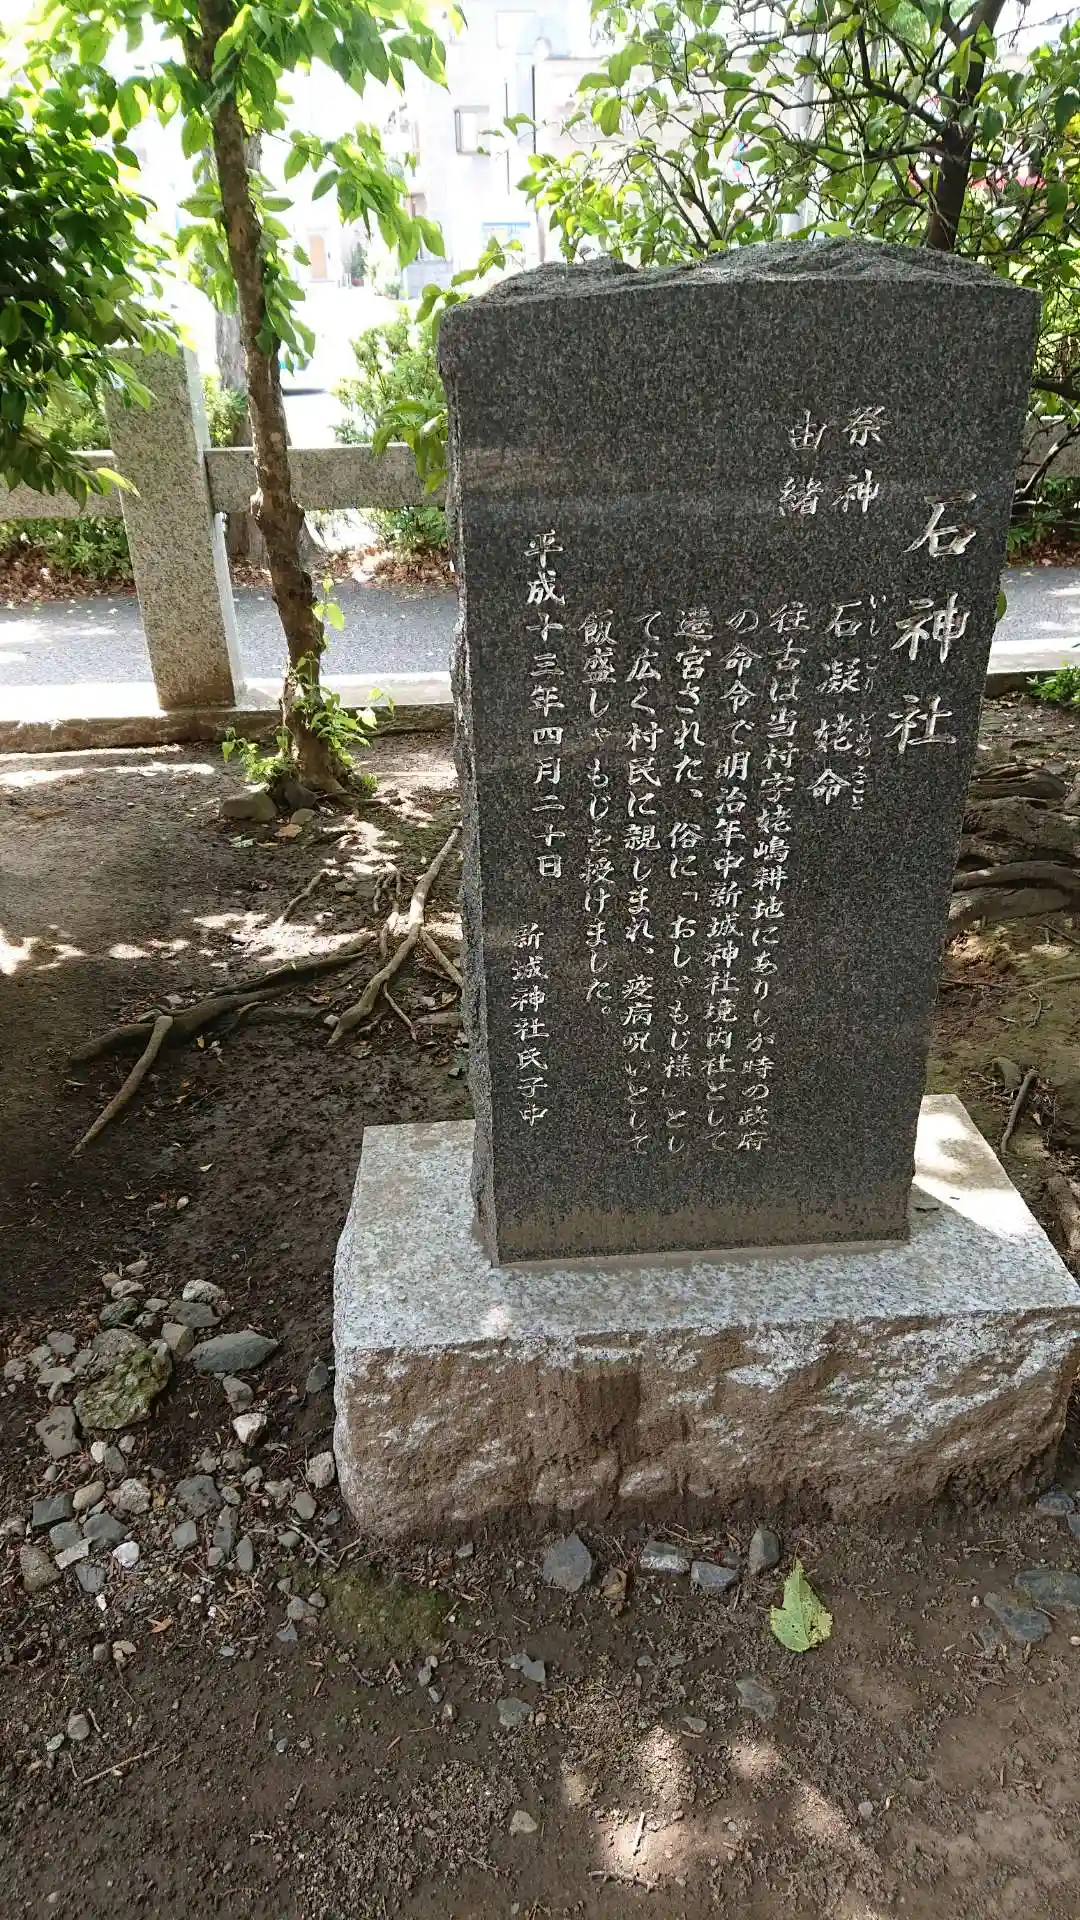 石神社
祭神 石凝姥命
いしこりどめのみこと
由緒
往古は当村字姥嶋耕地にありしが時の政府
の命令で明治年中新城神社境内社として
遷宮された、俗に「おしゃもじ様」とし
て広く村民に親しまれ、疫病呪いとして
飯盛しゃもじを授けました。
平成十三年四月二十日 新城神社氏子中